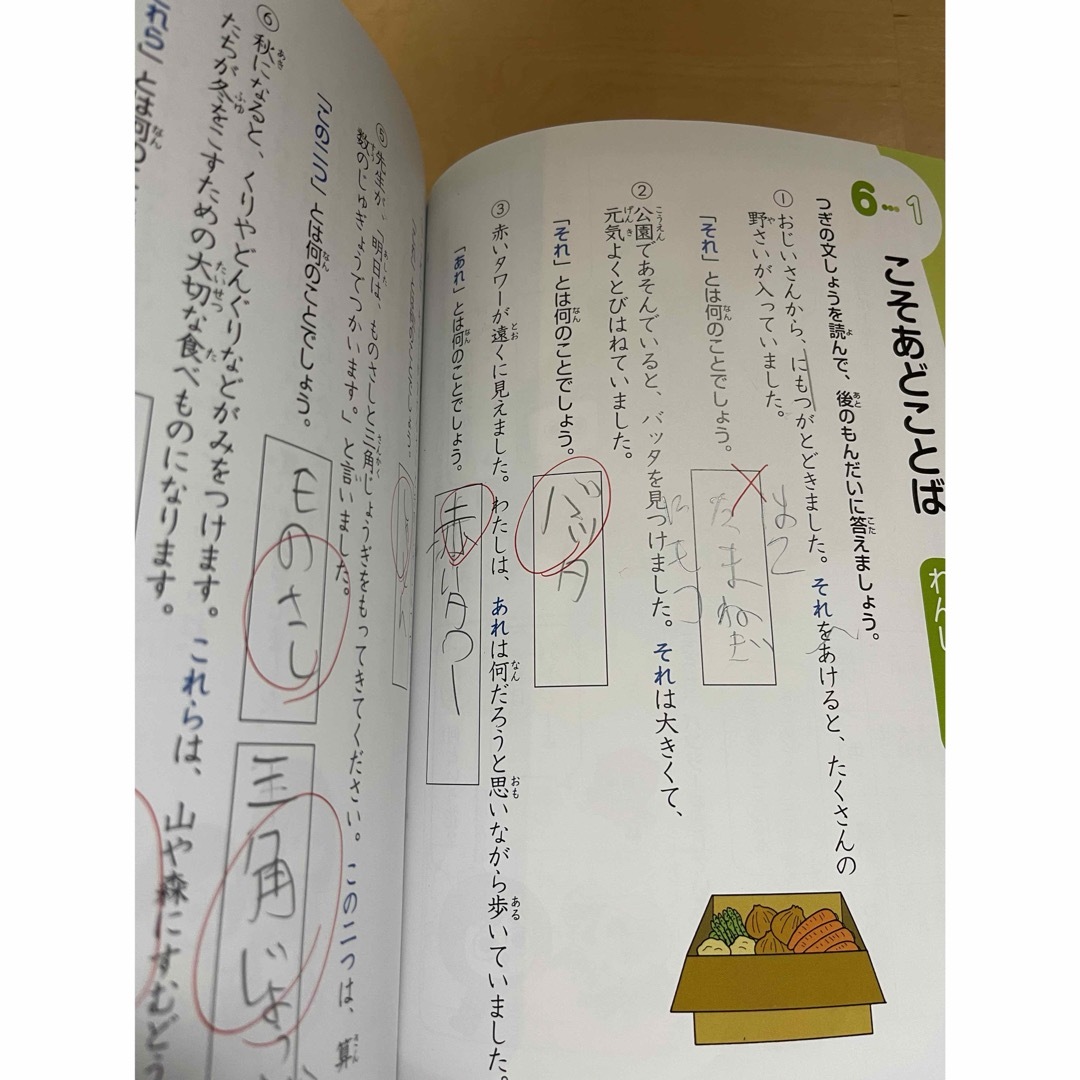 6…1
こそあどことば
わんし
つぎの文しょうを読んで、後のもんだいに答えましょう。
① おじいさんから、にもつがとどきました。それをあけると、たくさんの
野さいが入っていました。
「それ」とは何のことでしょう。
たまねぎ
にもつ
② 公園であそんでいると、バッタを見つけました。それは大きくて、
元気よくとびはねていました。
「それ」とは何のことでしょう。
バッタ
③ 赤いタワーが遠くに見えました。わたしは、あれは何だろうと思いながら歩いていました。
「あれ」とは何のことでしょう。
赤いタワー
⑤ 先生が、「明日は、ものさしと三角じょうぎをもってきてください。この二つは、算
数のじゅぎょうでつかいます。」と言いました。
「この二つ」とは何のことでしょう。
ものさし
三角じょう
⑥ 秋になると、くりやどんぐりなどがみをつけます。これらは、山や森にすむどう
たちが冬をこすための大切な食べものになります。
れら」とは何の